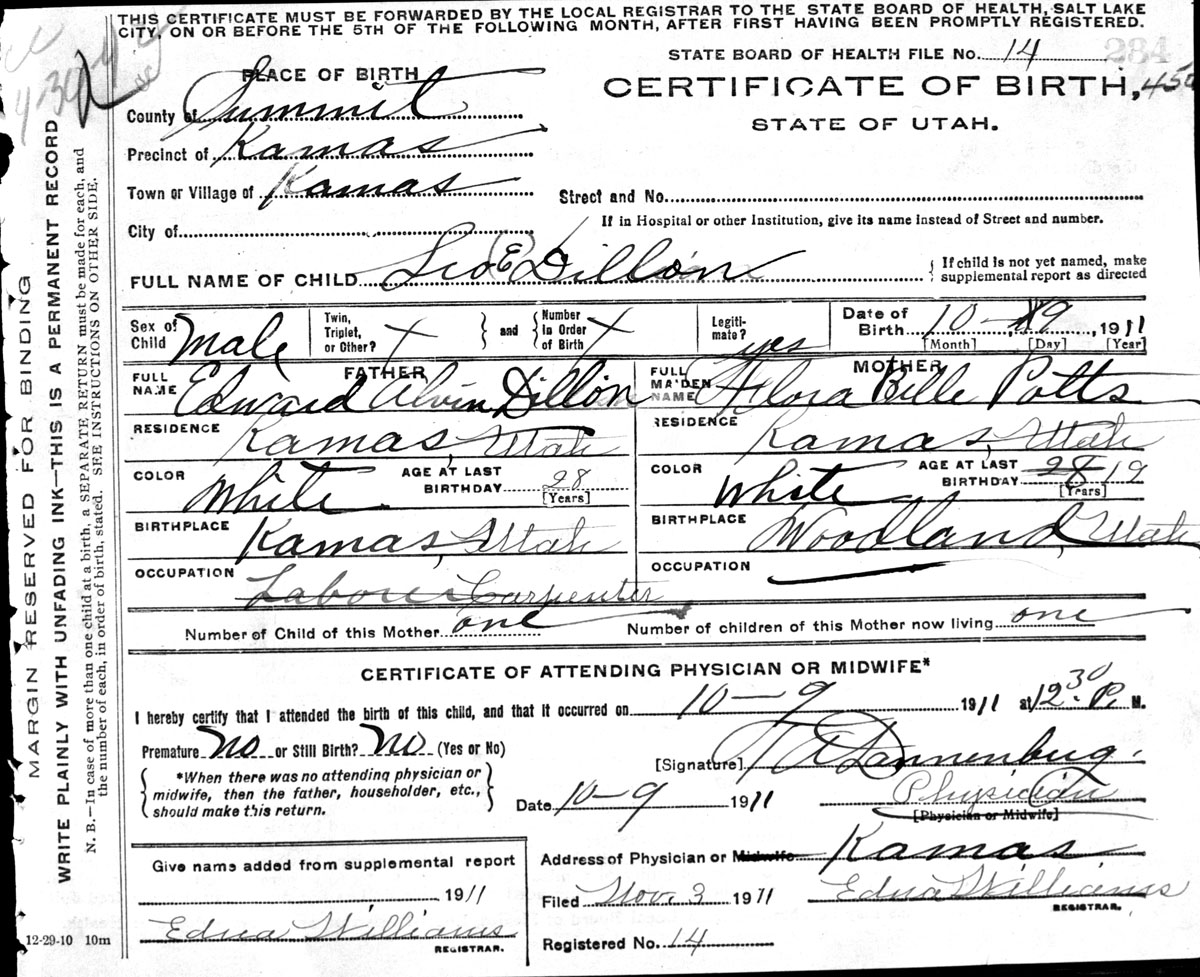 THIS CERTIFICATE MUST BE FORWARDED BY THE LOCAL REGISTRAR TO THE STATE BOARD OF HEALTH, SALT LAKE
CITY, ON OR BEFORE THE 5TH OF THE FOLLOWING MONTH, AFTER FIRST HAVING BEEN PROMPTLY REGISTERED.
STATE BOARD OF HEALTH FILE No. 14 284
PLACE OF BIRTH
CERTIFICATE OF BIRTH,
STATE OF UTAH.
County of Summit
Precinct of Kamas
Town or Village of Kamas
Street and No.
If in Hospital or other Institution, give its name instead of Street and number.
City of
FULL NAME OF CHILD Leo E Dillon
{ If child is not yet named, make
supplemental report as directed
Sex of Child Male
Twin, Triplet, or Other? X } and { Number in Order of Birth X
Legitimate? yes
Date of Birth 10 - 9, 1911
[Month] [Day] [Year]
FATHER
FULL NAME Edward Alvin Dillon
RESIDENCE Kamas, Utah
COLOR White
AGE AT LAST BIRTHDAY 28
[Years]
BIRTHPLACE Kamas, Utah
OCCUPATION Laborer Carpenter
MOTHER
FULL MAIDEN NAME Flora Belle Potts
RESIDENCE Kamas, Utah
COLOR White
AGE AT LAST BIRTHDAY 28 19
[Years]
BIRTHPLACE Woodland, Utah
OCCUPATION
Number of Child of this Mother one
Number of children of this Mother now living one
CERTIFICATE OF ATTENDING PHYSICIAN OR MIDWIFE*
I hereby certify that I attended the birth of this child, and that it occurred on 10 - 9 1911 at 12 30 P. M.
Premature No or Still Birth? No (Yes or No)
{ *When there was no attending physician or
midwife, then the father, householder, etc.,
should make this return. }
[Signature] Dannenburg.
Date 10-9 1911
Physician
[Physician or Midwife]
Address of Physician or Midwife Kamas.
Filed Nov. 3 1911 Edna Williams
REGISTRAR.
Registered No. 14
Give name added from supplemental report
1911
Edna Williams
REGISTRAR.
12-29-10 10m
MARGIN RESERVED FOR BINDING
WRITE PLAINLY WITH UNFADING INK—THIS IS A PERMANENT RECORD
N. B.—In case of more than one child at a birth, a SEPARATE RETURN must be made for each, and
the number of each, in order of birth, stated. SEE INSTRUCTIONS ON OTHER SIDE.